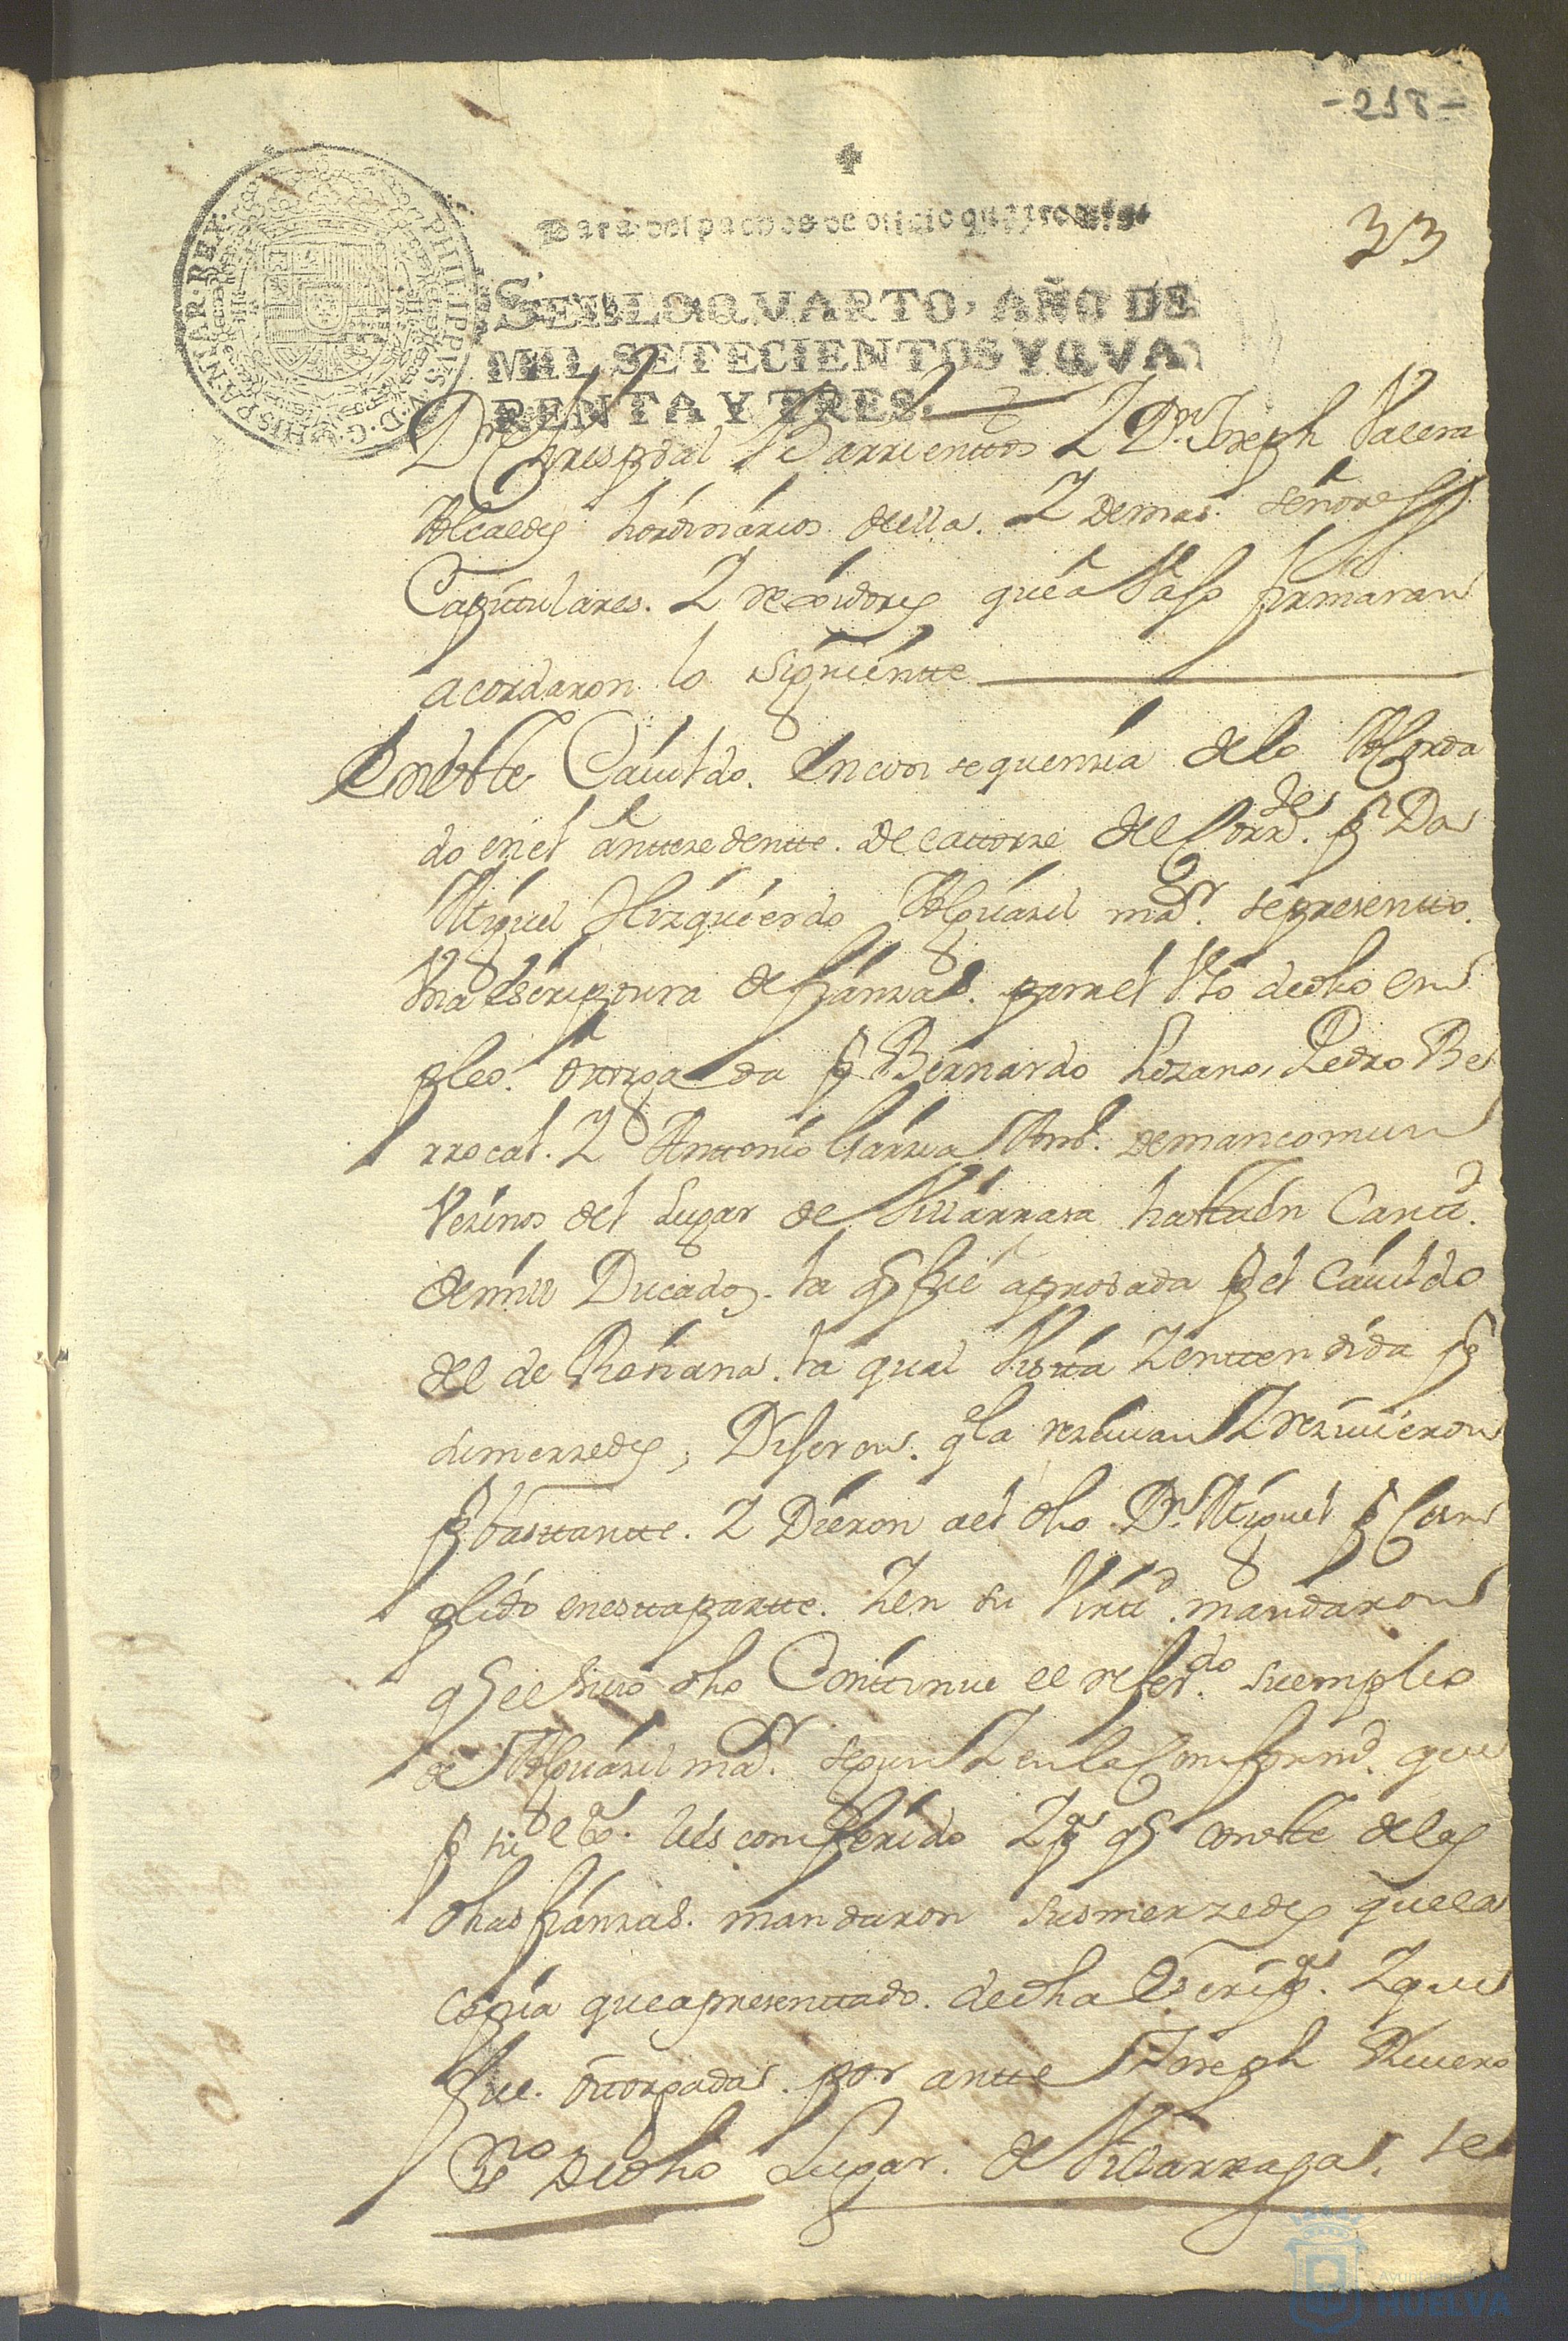 -218-
33
Para despachos de oficio quatro mrs
SELLO QVARTO, AÑO DE
MIL SETECIENTOS Y QVA
RENTA Y TRES.
PHILIPPUS V D G HISPANIAR REX
Dn Christoval Barrientos Y Dn Joseph Valera
Alcaldes hordinarios della. Y demas señores
Capitulares. Y rexidores que a Vajo firmaran
acordaron lo siguientte
En estte Cavildo. En consequenzia de lo Acorda
do en el anttezedentte. de cattorze del Corrte. pr Don
Miguel Hizquierdo Alguazil mor. se presentto.
Vna escriptura de fianzas. para el Vso de dho em
pleo. ottorgada pr Bernardo Lozano, Pedro Be
rrocal. Y Anttonio Garzia de mancomun
Vezinos del Lugar de Villarrasa hastta en Cantd.
de mill Ducados. la q fue aprobada pr el Cavildo
del de Roziana. la qual Vistta Y enttendida pr
sus merzedes; Dijeron. q la rezivian Y rezivieron
pr basttantte. Y Dieron a el dho Dn Miguel pr Cum
plido en estta partte. Y en su Virtd. mandaron
q el suso dho Conttinue el referdo. su empleo
de Alguazil mor. segun Y en la Conformd. que
pr su Exa. le es conferido Y pa q constte de las
dhas fianzas. mandaron sus merzedes que la
copia que a presenttado. de dha Escripa. Y que
fue. ottorgada. por antte Joseph Rivero
Sno de dho Lugar. de Villarrasa. se
Ayuntamiento de
HUELVA